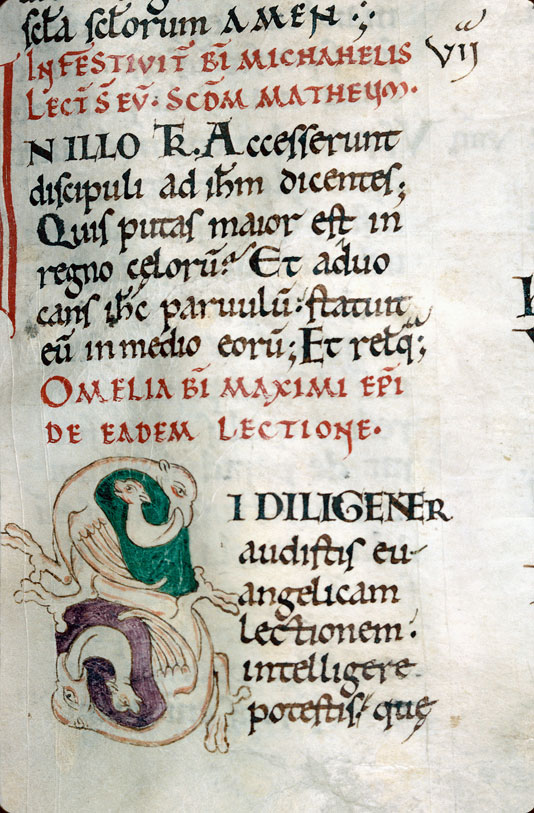 sc̄la sc̄lorum AMEN
IN FESTIVIT̄ BĪ MICHAHELIS VII
LECT̄ S̄ EV̄. SC̄DM MATHEUM.
IN ILLO T̄R. Accesserunt
discipuli ad ih̄m dicentes;
Quis putas maior est in
regno cęlorū? Et advo
cans ih̄c parvulū. statuit
eū in medio eorū; Et relq̄;
OMELIA BĪ MAXIMI EP̄I
DE EADEM LECTIONE.
SI DILIGENER
audistis eu
angelicam
lectionem.
intelligere
potestis. quę